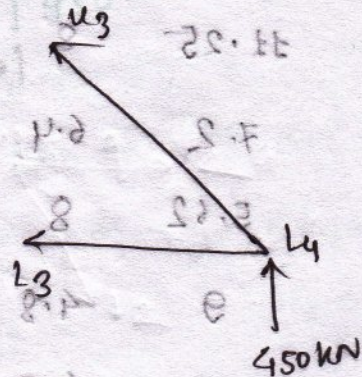 U3
L3
L4
450KN